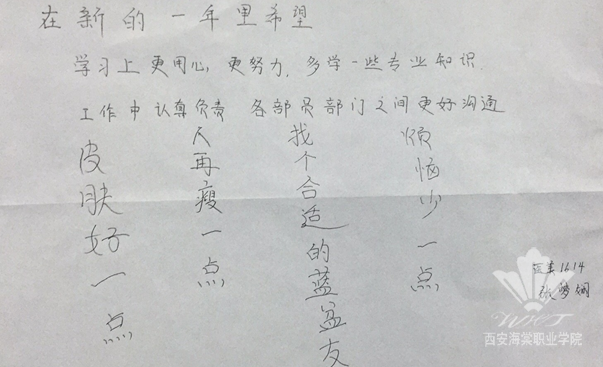 在新的一年里希望
学习上更用心,更努力,多学一些专业知识.
工作中认真负责 各部员部门之间更好沟通
皮肤好一点
人再瘦一点
找个合适的蓝盆友
烦恼少一点
医美1614
张梦娴
西安海棠职业学院